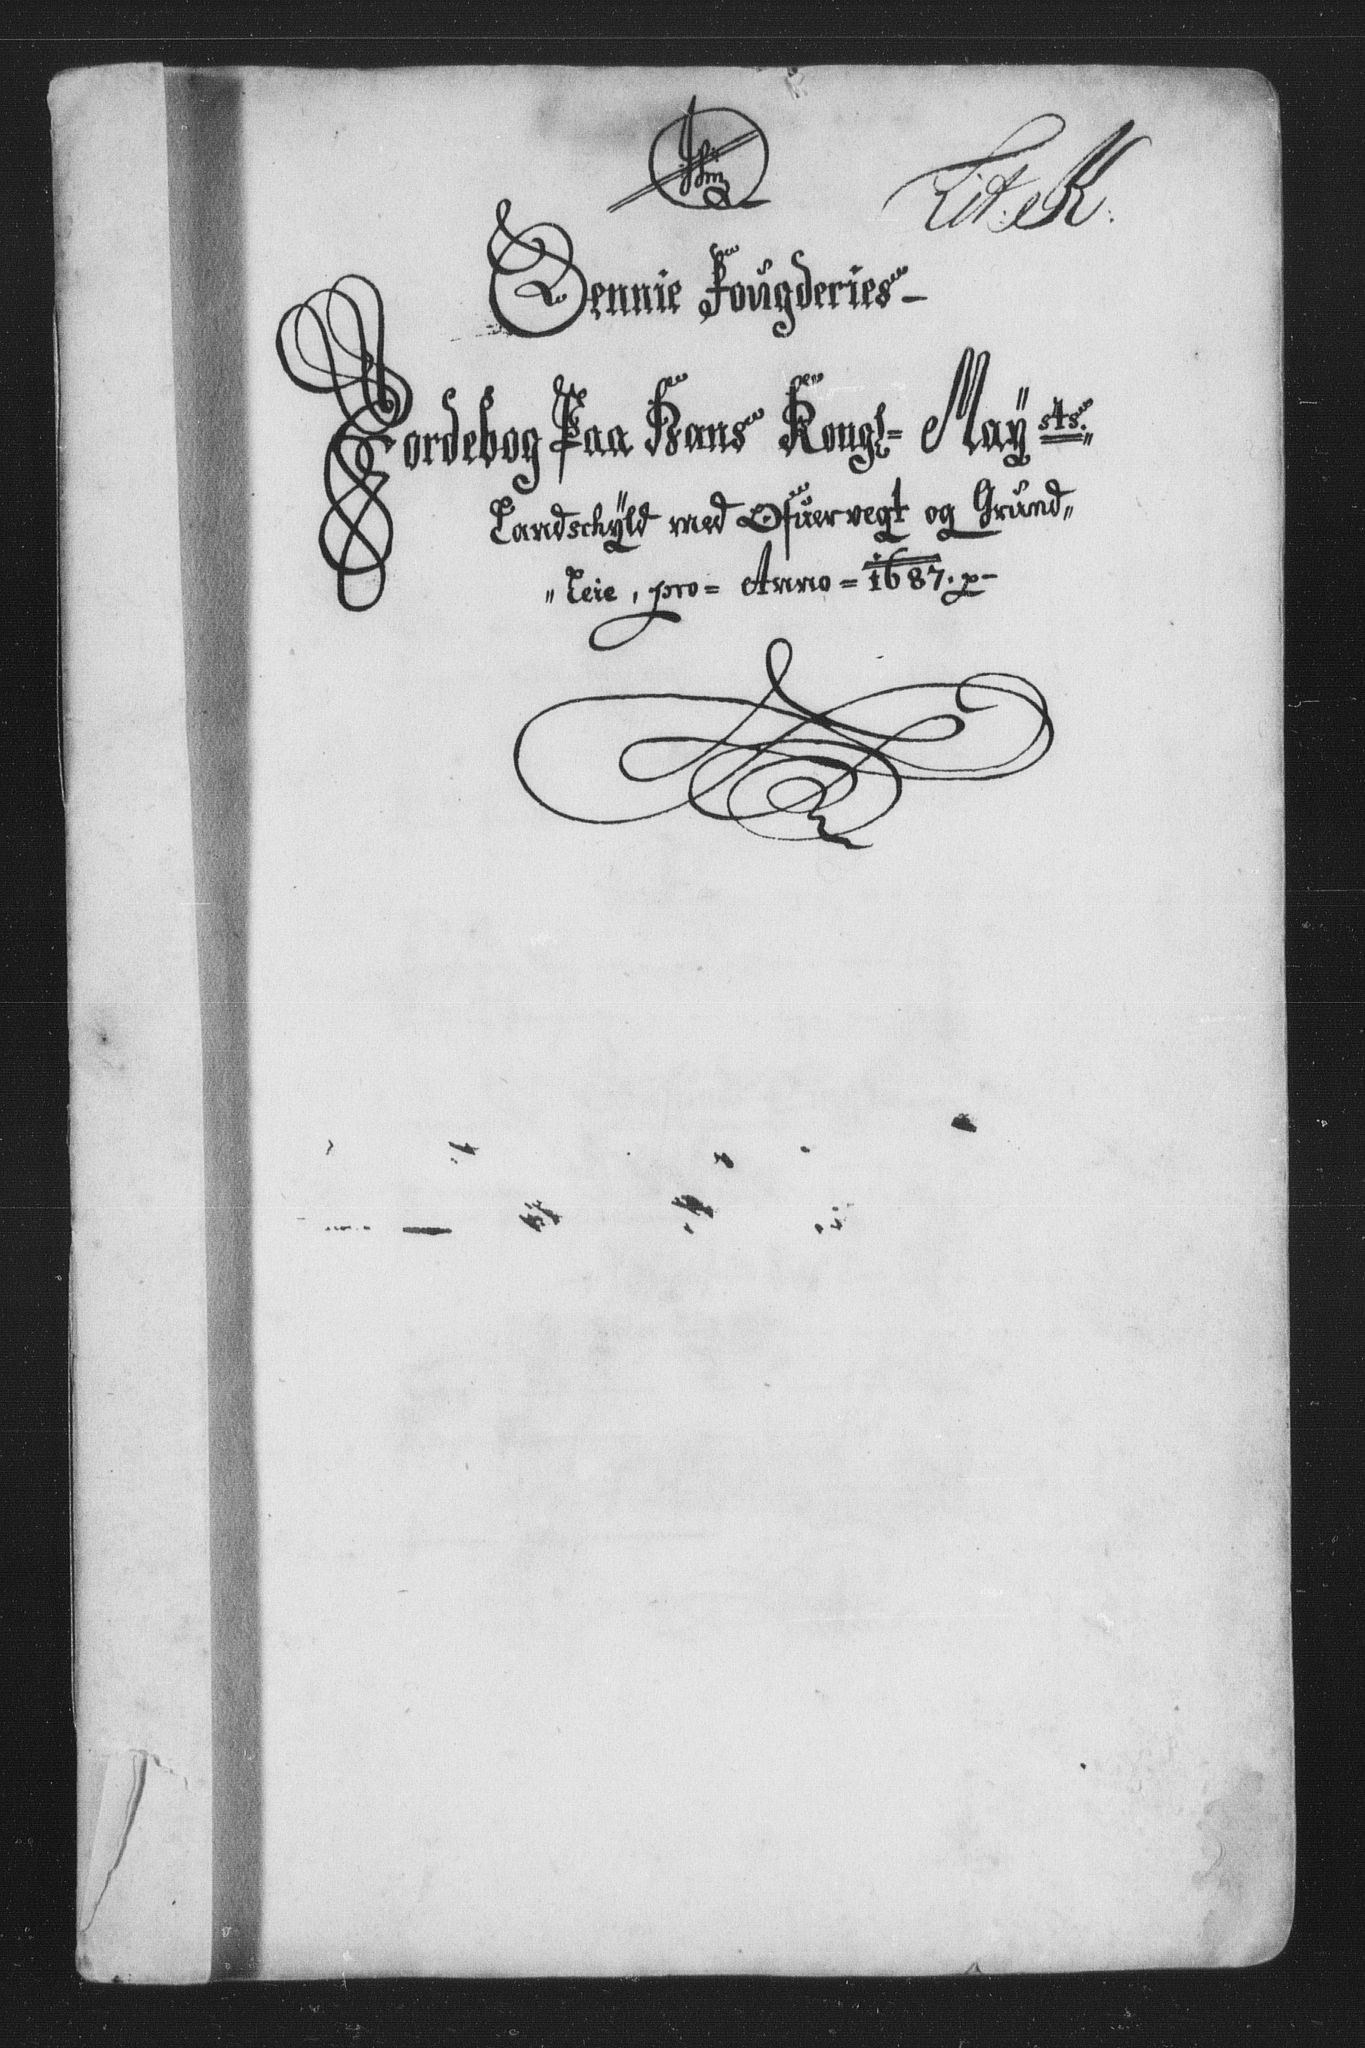 Lit: K:
Dennie Foŭgderies
Jordebog Paa Hans Kongl= Maÿsts:
Landschÿld med Ofŭervegt og Grŭnd„
„Leie, pro= Anno= 1687.